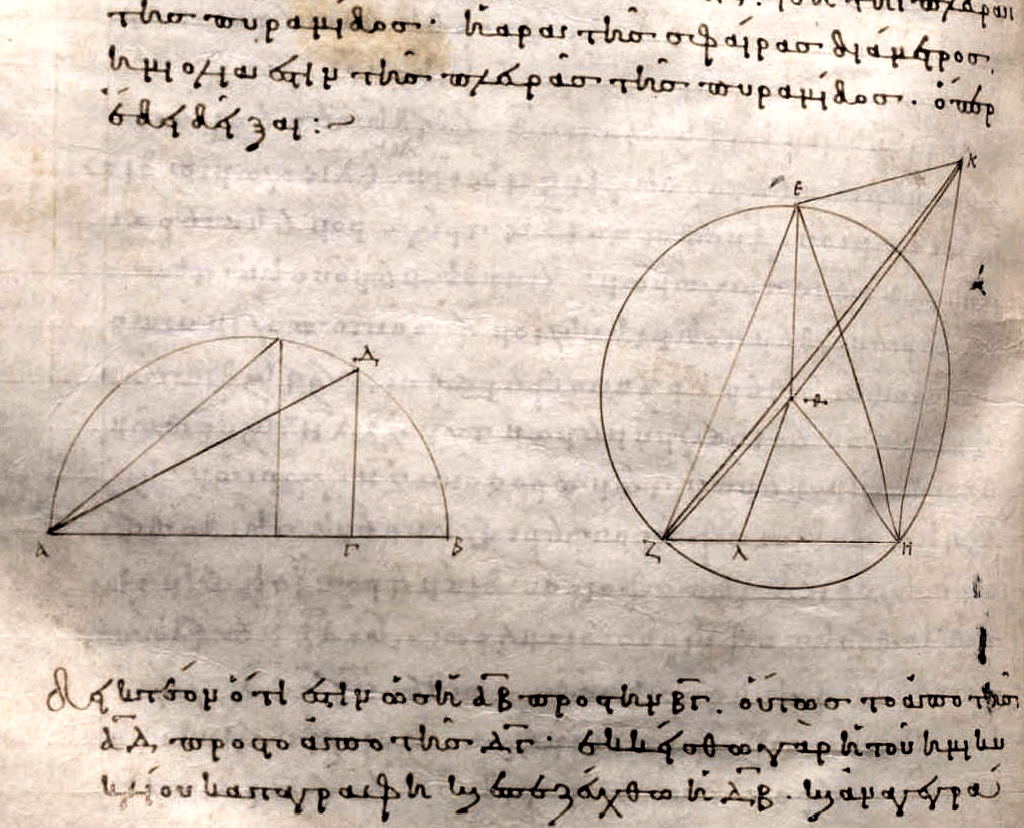 τῆς πυραμίδος· ἡ ἄρα τῆς σφαίρας διάμετρος
ἡμιολία ἐστὶν τῆς πλευρᾶς τῆς πυραμίδος. ὅπερ
ἔδει δεῖξαι :~
Κ
Ε
Δ
Θ
Α Γ Β Ζ Λ Η
Δεικτέον ὅτι ἐστὶν ὡς ἡ ΑΒ πρὸς τὴν ΒΓ. οὕτως τὸ ἀπὸ τῆς
ΑΔ πρὸς τὸ ἀπὸ τῆς ΔΓ· ἐκκείσθω γὰρ ἡ τοῦ ἡμικυ
κλίου καταγραφὴ κ ἐπεζεύχθω ἡ ΔΒ. κ ἀναγεγρά